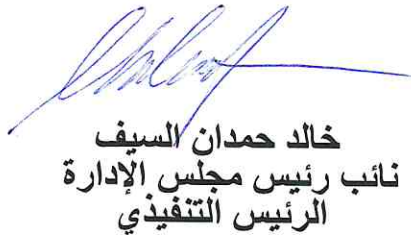 خالد حمدان السيف
نائب رئيس مجلس الإدارة
الرئيس التنفيذي